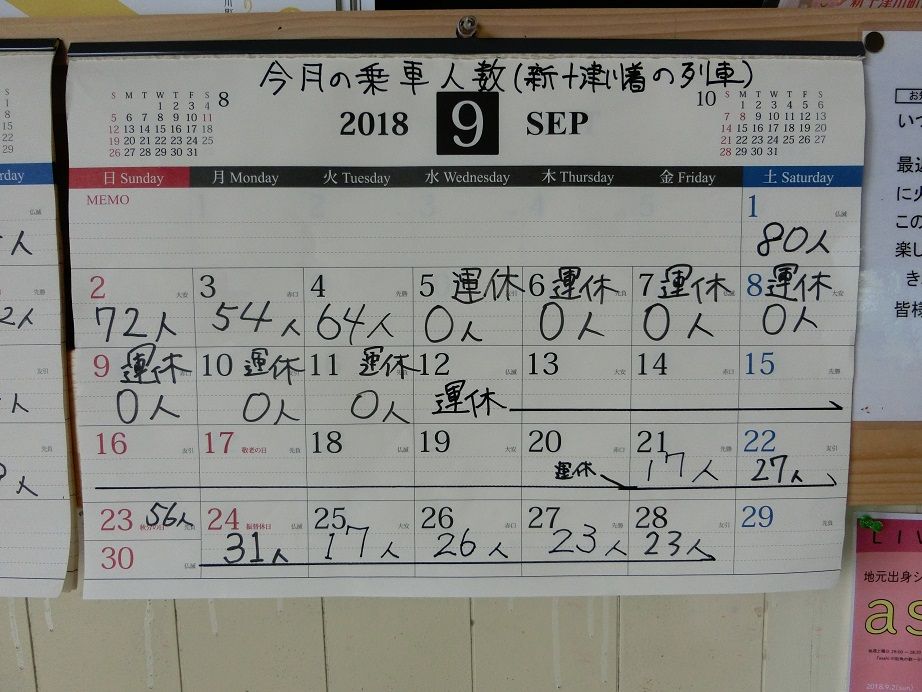 今月の乗車人数(新十津川着の列車)
8
S M T W T F S
1 2 3 4
5 6 7 8 9 10 11
12 13 14 15 16 17 18
19 20 21 22 23 24 25
26 27 28 29 30 31
2018 9 SEP
10
S M T W T F S
1 2 3 4 5 6
7 8 9 10 11 12 13
14 15 16 17 18 19 20
21 22 23 24 25 26 27
28 29 30 31
日 Sunday 月 Monday 火 Tuesday 水 Wednesday 木 Thursday 金 Friday 土 Saturday
MEMO
1 仏滅
80人
2 大安 3 赤口 4 先勝 5 運休 6 運休 7 運休 8 運休
72人 54人 64人 0人 0人 0人 0人
9 運休 10 運休 11 運休 12 仏滅 13 大安 14 赤口 15 先勝
0人 0人 0人 運休
16 友引 17 敬老の日 先負 18 仏滅 19 大安 20 赤口 21 先勝 22 友引
運休 17人 27人
23 秋分の日 56人 24 振替休日 仏滅 25 大安 26 赤口 27 先勝 28 友引 29 先負
31人 17人 26人 23人 23人
30 仏滅
rday
人
2人
人
人
いつ
最近
に火
この
楽し
き
皆様
LIV
地元出身シ
as
2018.9.2(sun)